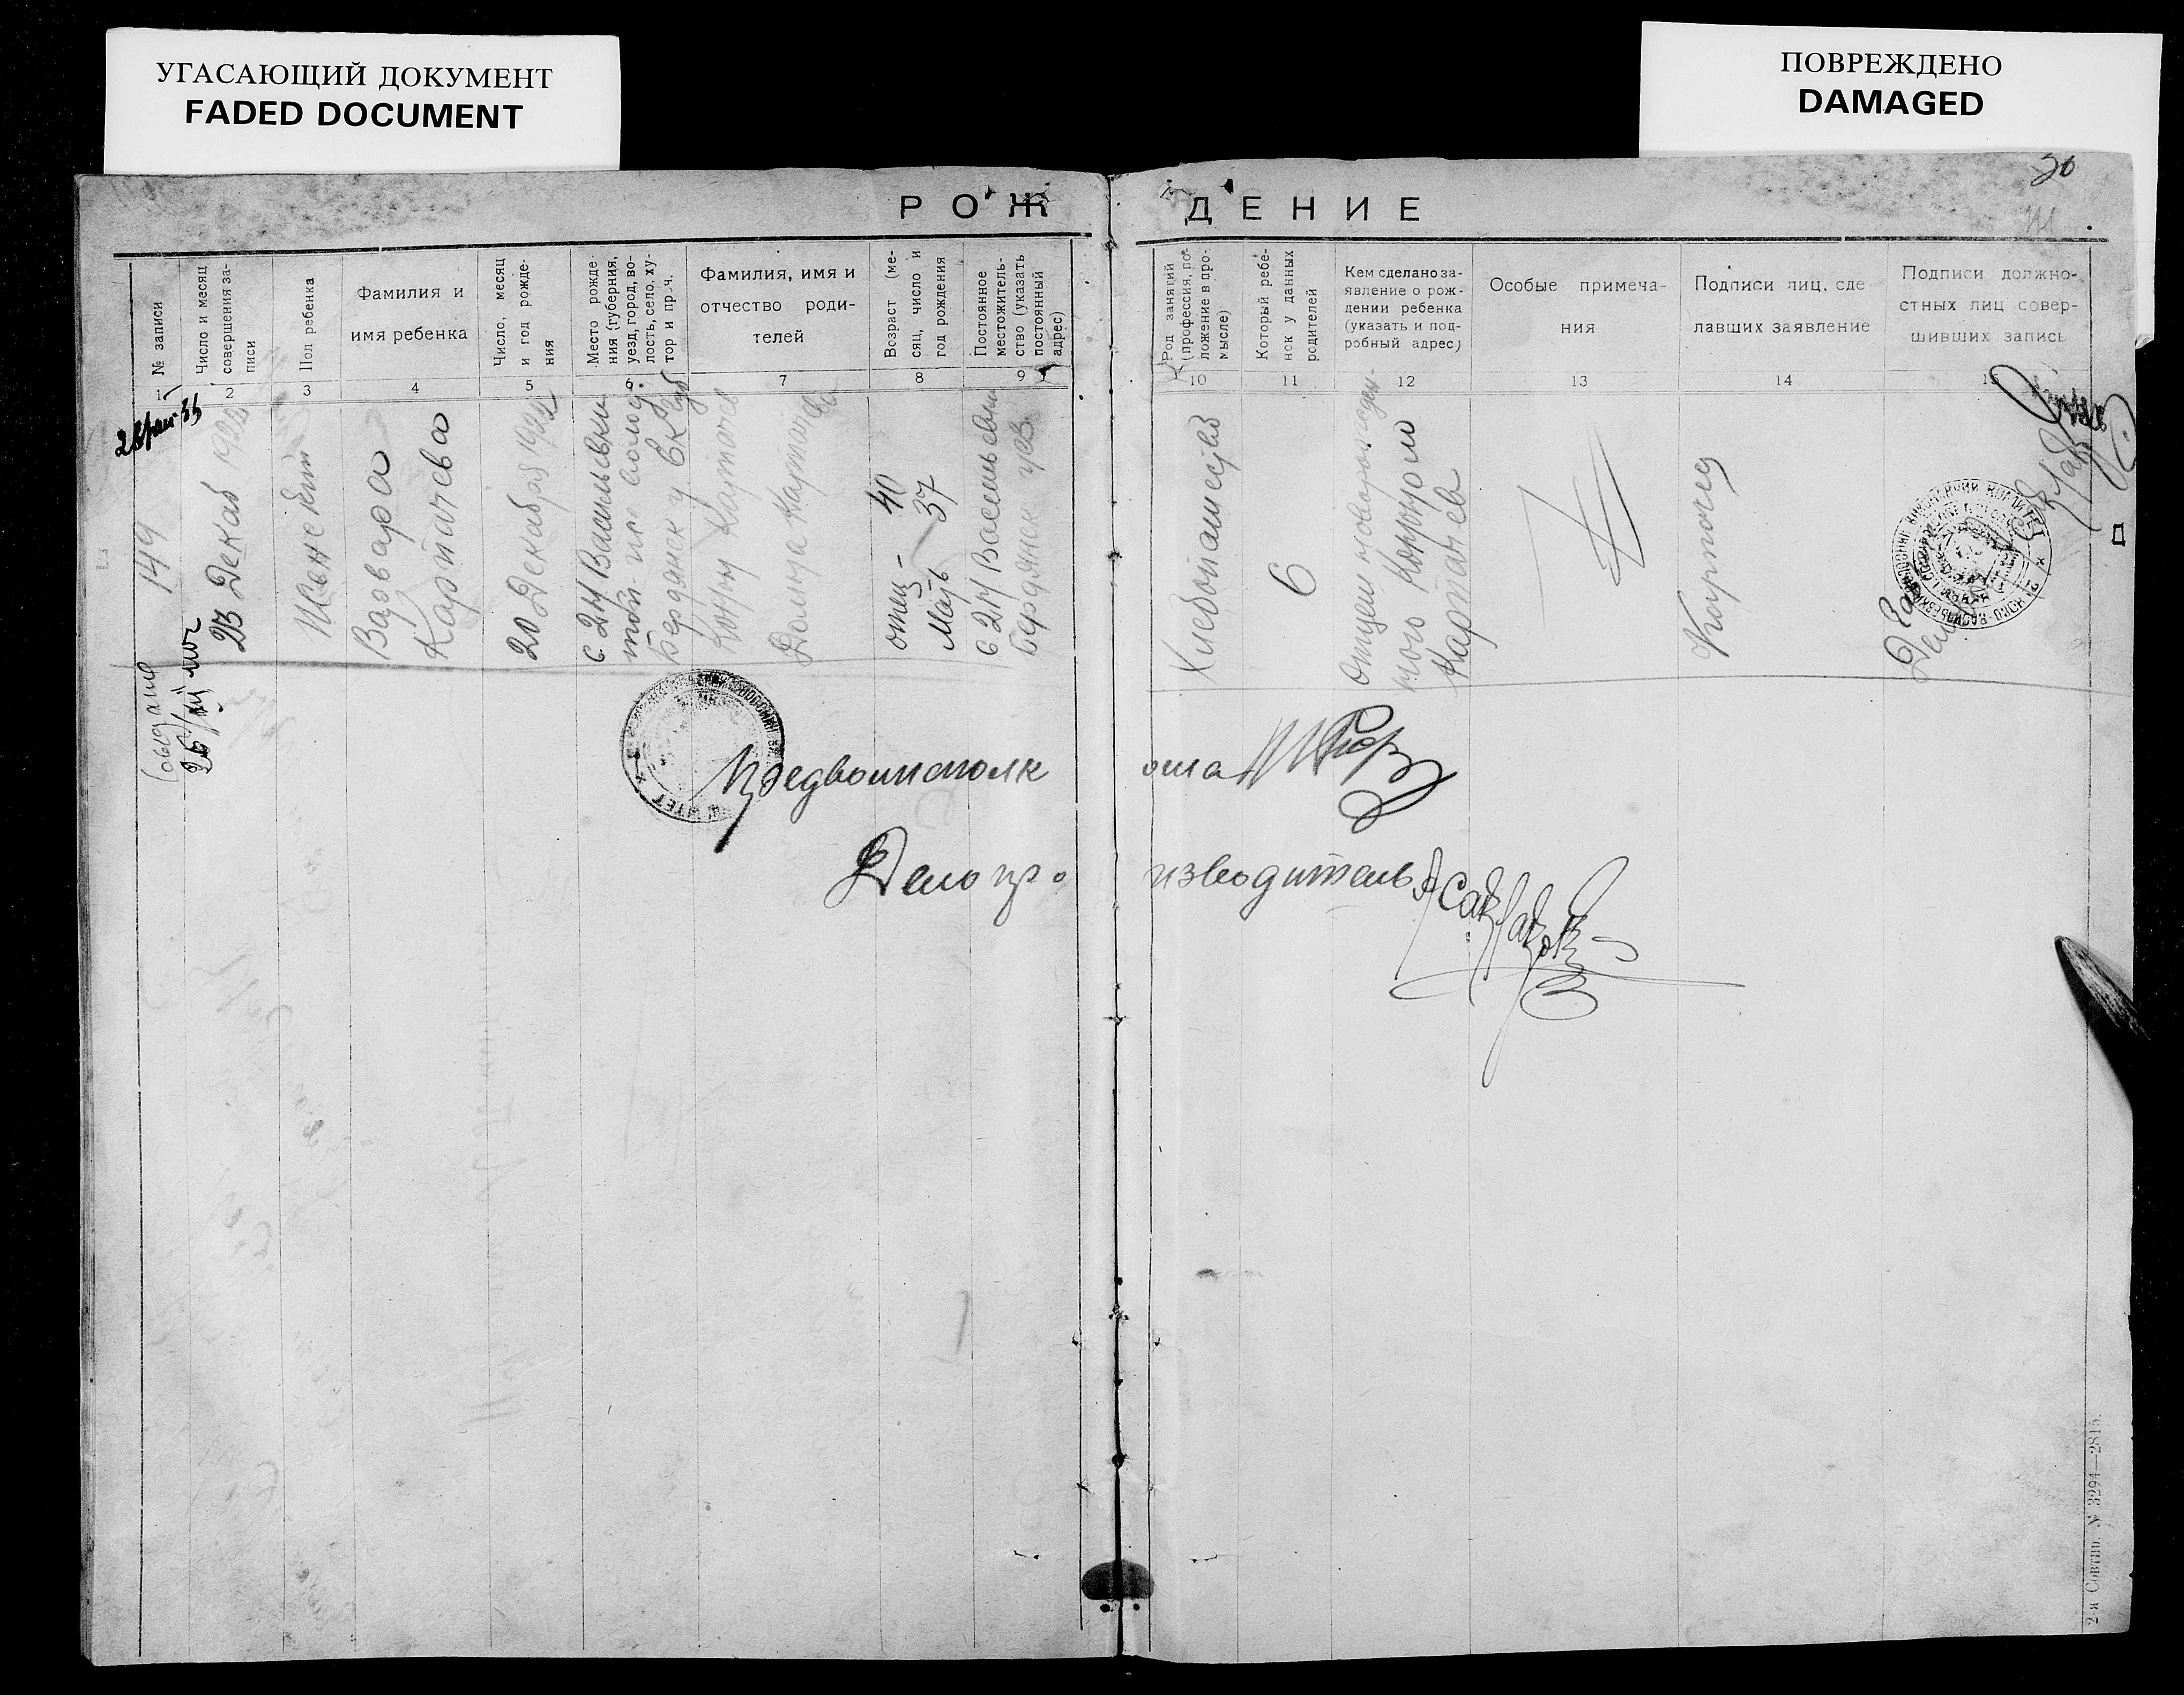 УГАСАЮЩИЙ ДОКУМЕНТ
FADED DOCUMENT
ПОВРЕЖДЕНО
DAMAGED
30
РОЖДЕНИЕ
№ записи
Число и месяц
совершения за-
писи
Пол ребенка
Фамилия и
имя ребенка
Число, месяц
и год рожде-
ния
Место рожде-
ния (губерния,
уезд, город, во-
лость, село, ху-
тор и проч.
Фамилия, имя и
отчество роди-
телей
Возраст (ме-
сяц, число и
год рождения
Постоянное
местожитель-
ство (указать
постоянный
адрес)
Род занятий
(профессия, по-
ложение в про-
мысле)
Который ребе-
нок у данных
родителей
Кем сделано за-
явление о рож-
дении ребенка
(указать и под-
робный адрес)
Особые примеча-
ния
Подписи лиц, сде
лавших заявление
Подписи должно-
стных лиц совер-
шивших запись
1 2 3 4 5 6 7 8 9 10 11 12 13 14 15
149
23 Декаб 1922
Женский
Варвара
Карпачева
20 Декабря 1922
с. 2й Васильевки
той-же волод
Бердянск у Екгуб
Карпачев
Домна Карпачева
отец - 40
Мать 37
с 2й Васильевки
Бердянск уез
Хлебопашество
6
отцем новорожден-
ного
Карпачев
Карпачев
выдано
Предволисполк
ома
Делопро
изводитель
2-я Совтип. № 3294—2815.